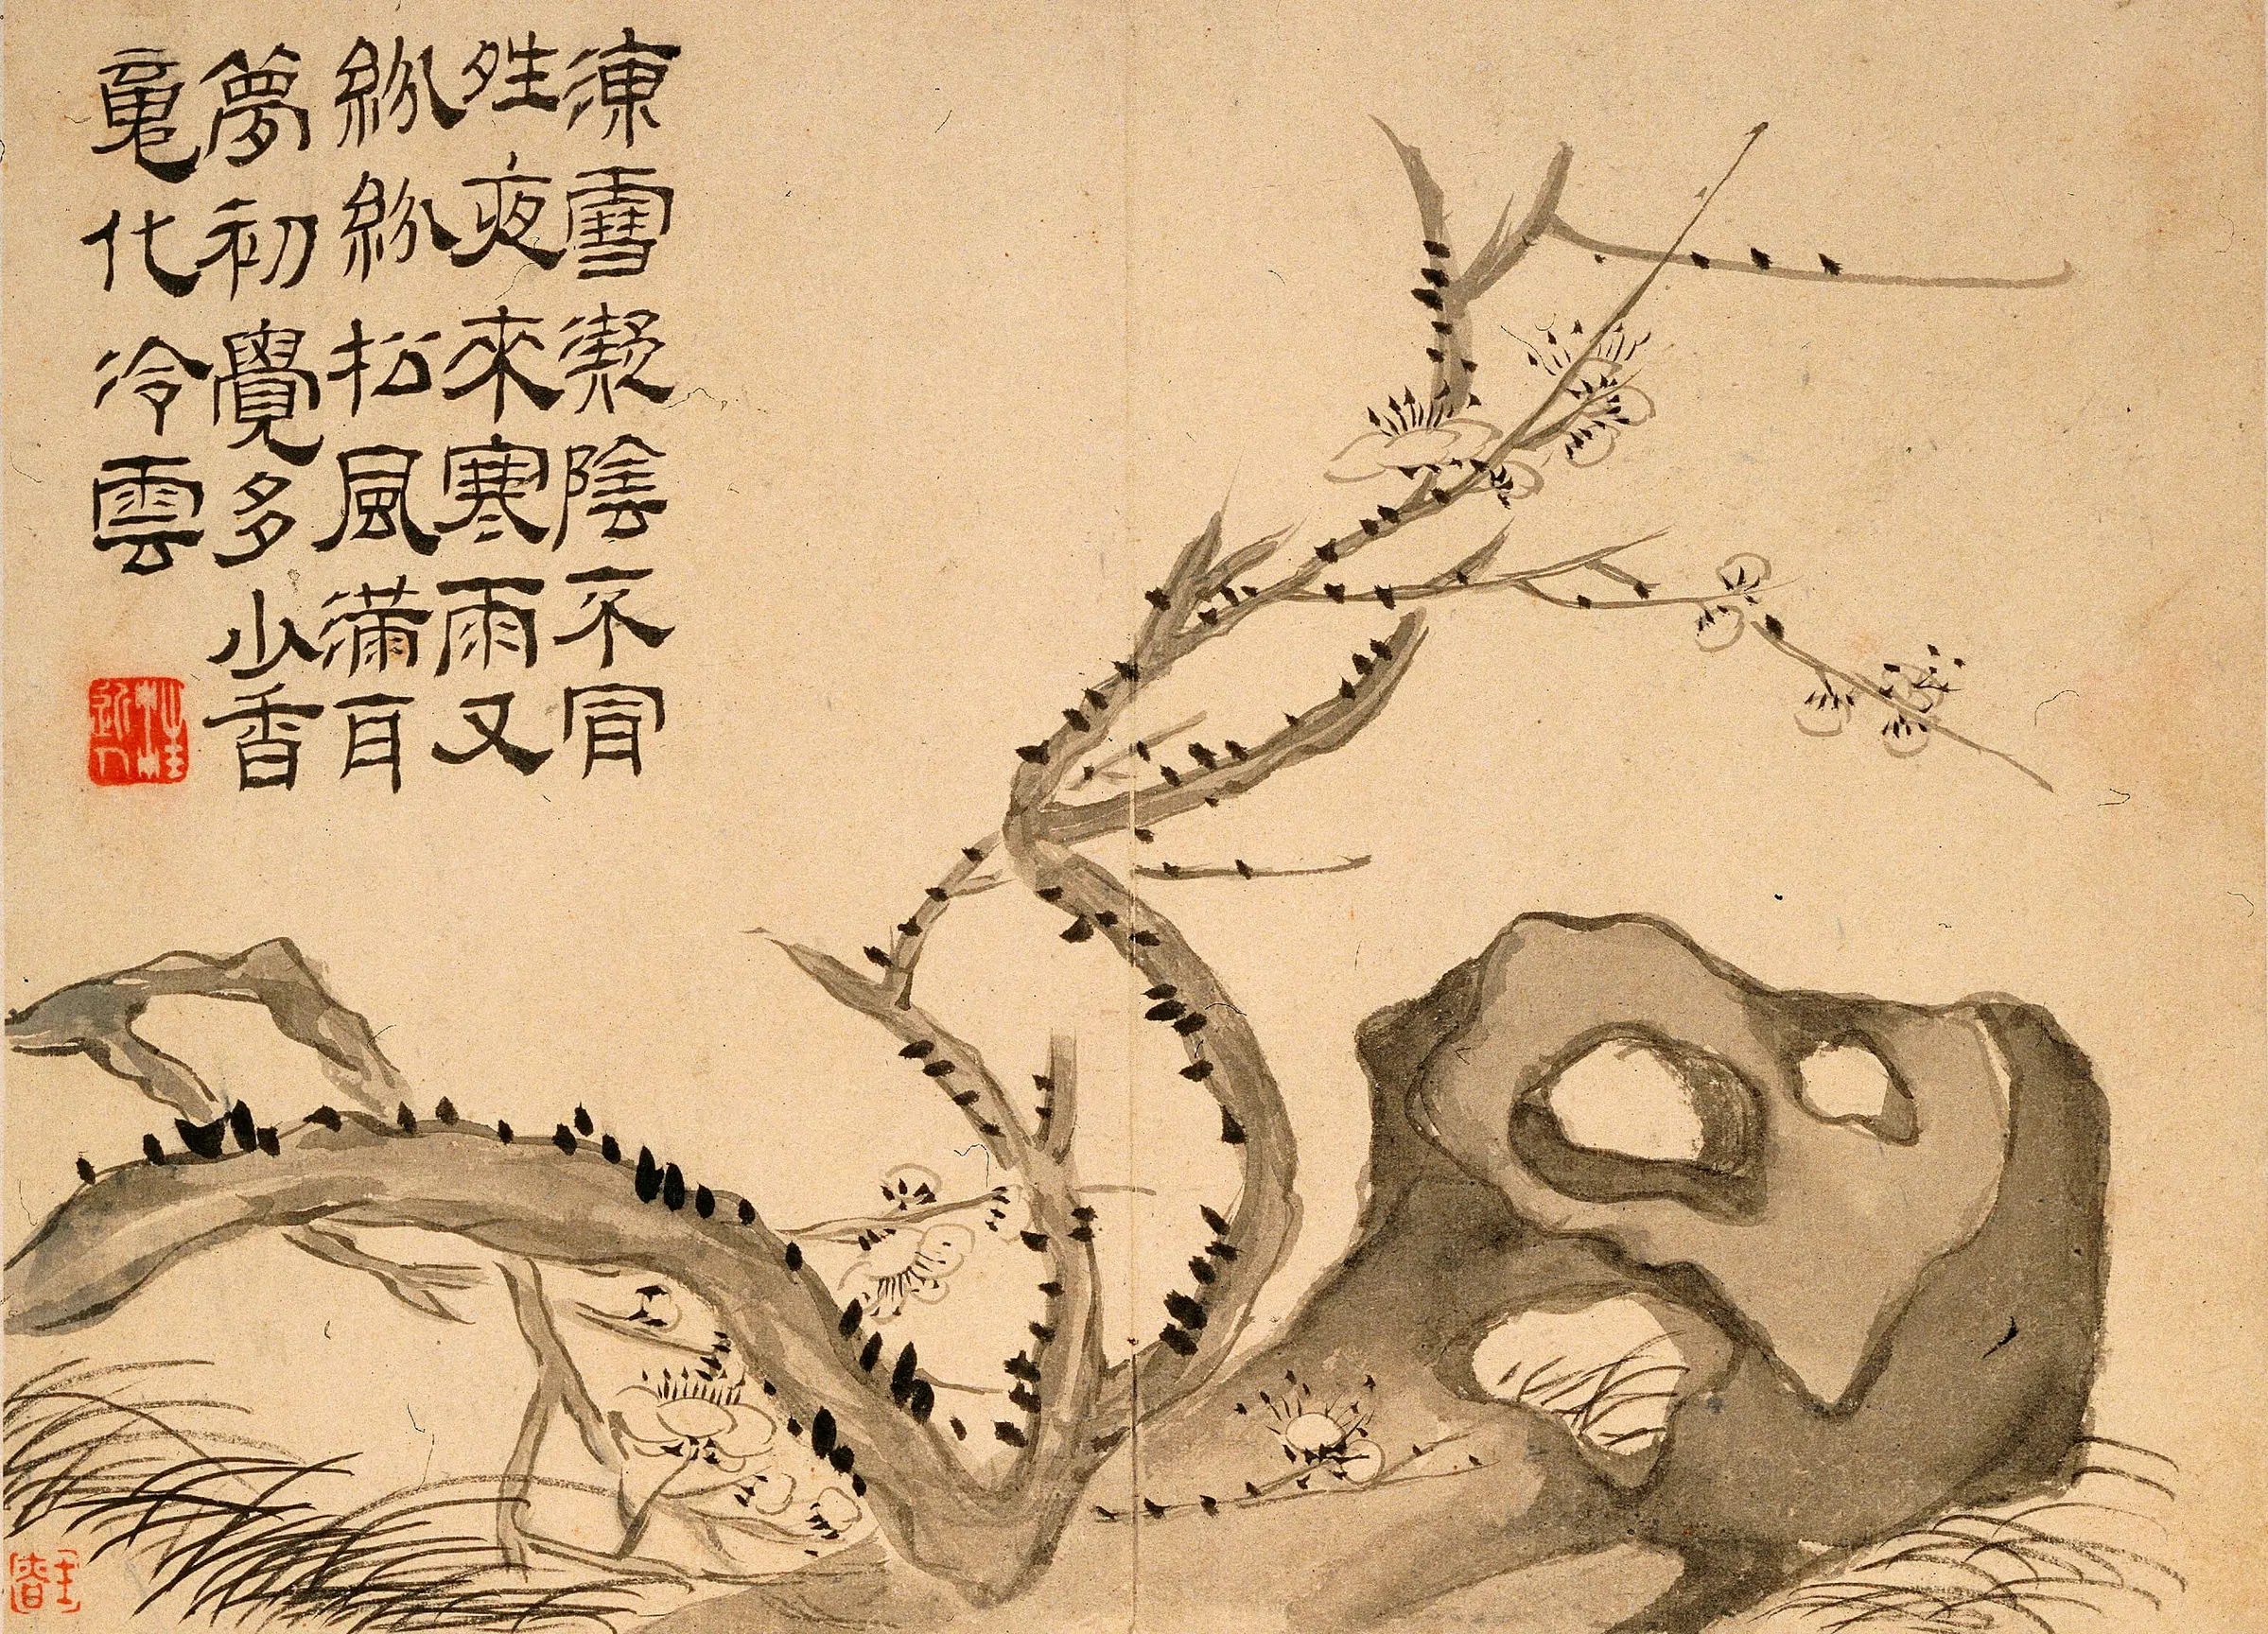 凍雪凝陰不肎
夝夜來寒雨又
紛紛松風滿耳
夢初覺多少香
魂化冷雲